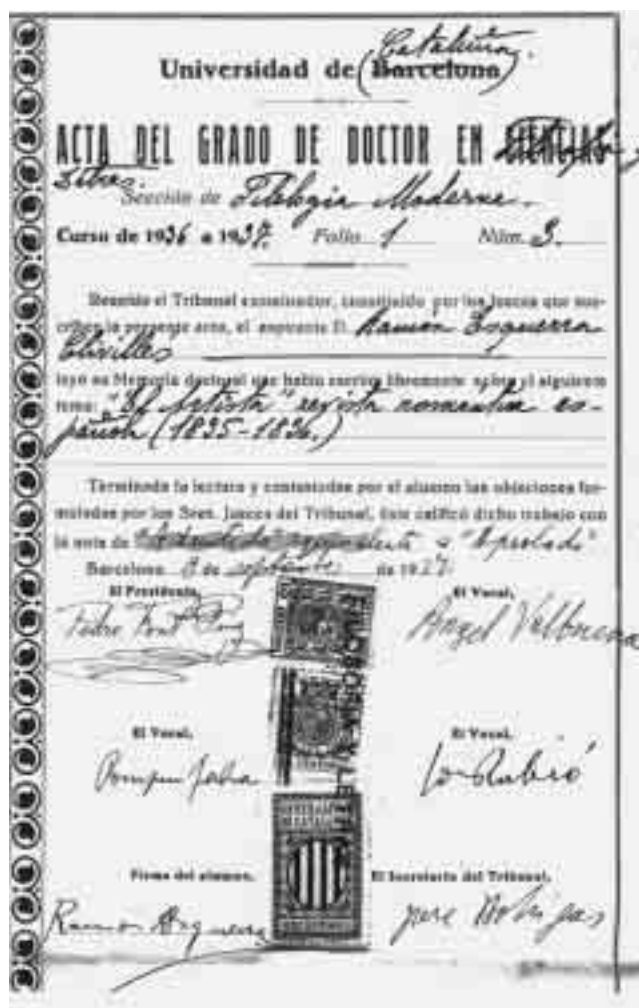 Cataluña.
Universidad de (Barcelona)
ACTA DEL GRADO DE DOCTOR EN CIENCIAS Filosofía y
Letras.
Sección de Filología Moderna.
Curso de 1936 a 1937. Folio 1 Núm. 3.
Reunido el Tribunal examinador, constituido por los Jueces que sus-
criben la presente acta, el aspirante D. Ramón Esquerra
Clivilles
leyó su Memoria doctoral que había escrito libremente sobre el siguiente
tema: "El Artista" revista romántica es-
pañola (1835-1836.)
Terminada la lectura y contestadas por el alumno las objeciones for-
muladas por los Sres. Jueces del Tribunal, éste calificó dicho trabajo con
la nota de "Admitido" equivalente a "Aprobado"
Barcelona 8 de septiembre de 1937.
El Presidente, El Vocal,
Pedro Font Puig Angel Valbuena
FILOSOFIA Y LETR
El Vocal, El Vocal,
Pompeu Fabra Jo Rubió
Firma del alumno, El Secretario del Tribunal,
Ramon Esquerra Pere Bohigas